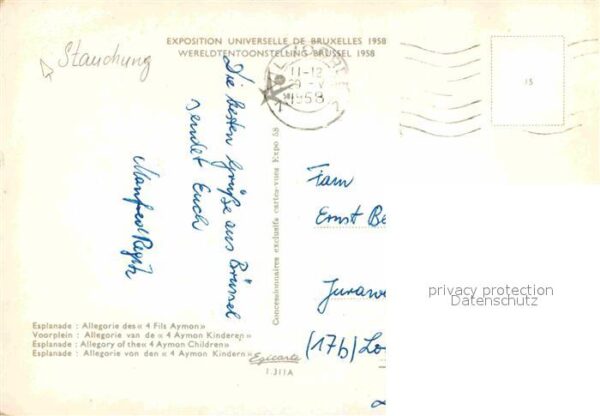 EXPOSITION UNIVERSELLE DE BRUXELLES 1958
WERELDTENTOONSTELLING BRUSSEL 1958
Stauchung
11-12
1958
15
Die besten Grüße aus Brüssel
sendet Euch
Manfred
Concessionnaires exclusifs cartes-vues Expo 58
Fam
Ernst Be
Jurawe
(17b) Lo
privacy protection
Datenschutz
Esplanade : Allegorie des « 4 Fils Aymon »
Voorplein : Allegorie van de « 4 Aymon Kinderen »
Esplanade : Allegory of the « 4 Aymon Children »
Esplanade : Allegorie von den « 4 Aymon Kindern »
Egicarte
1.311A